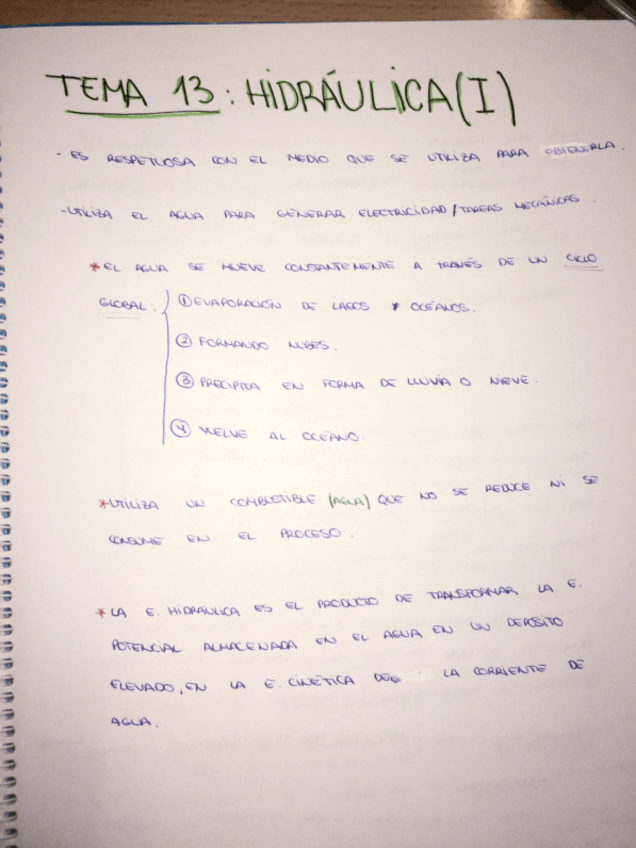 TEMA 13: HIDRÁULICA (I)
- ES RESPETUOSA CON EL MEDIO QUE SE UTILIZA PARA OBTENERLA.
- UTILIZA EL AGUA PARA GENERAR ELECTRICIDAD/TAREAS MECÁNICAS.
* EL AGUA SE MUEVE CONSTANTEMENTE A TRAVÉS DE UN CICLO
GLOBAL: ① EVAPORACIÓN DE LAGOS * OCÉANOS.
② FORMANDO NUBES.
③ PRECIPITA EN FORMA DE LLUVIA O NIEVE.
④ VUELVE AL OCÉANO.
* UTILIZA UN COMBUSTIBLE (AGUA) QUE NO SE REDUCE NI SE
CONSUME EN EL PROCESO.
* LA E. HIDRÁULICA ES EL PRODUCTO DE TRANSFORMAR LA E.
POTENCIAL ALMACENADA EN EL AGUA EN UN DEPÓSITO
ELEVADO, EN LA E. CINÉTICA DE LA CORRIENTE DE
AGUA.